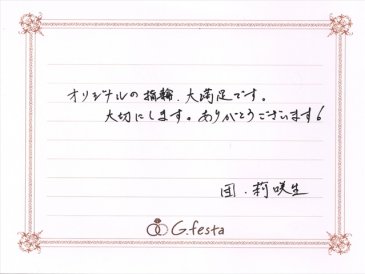 オリジナルの指輪、大満足です。
大切にします。ありがとうございます!
団・莉咲生
G.festa